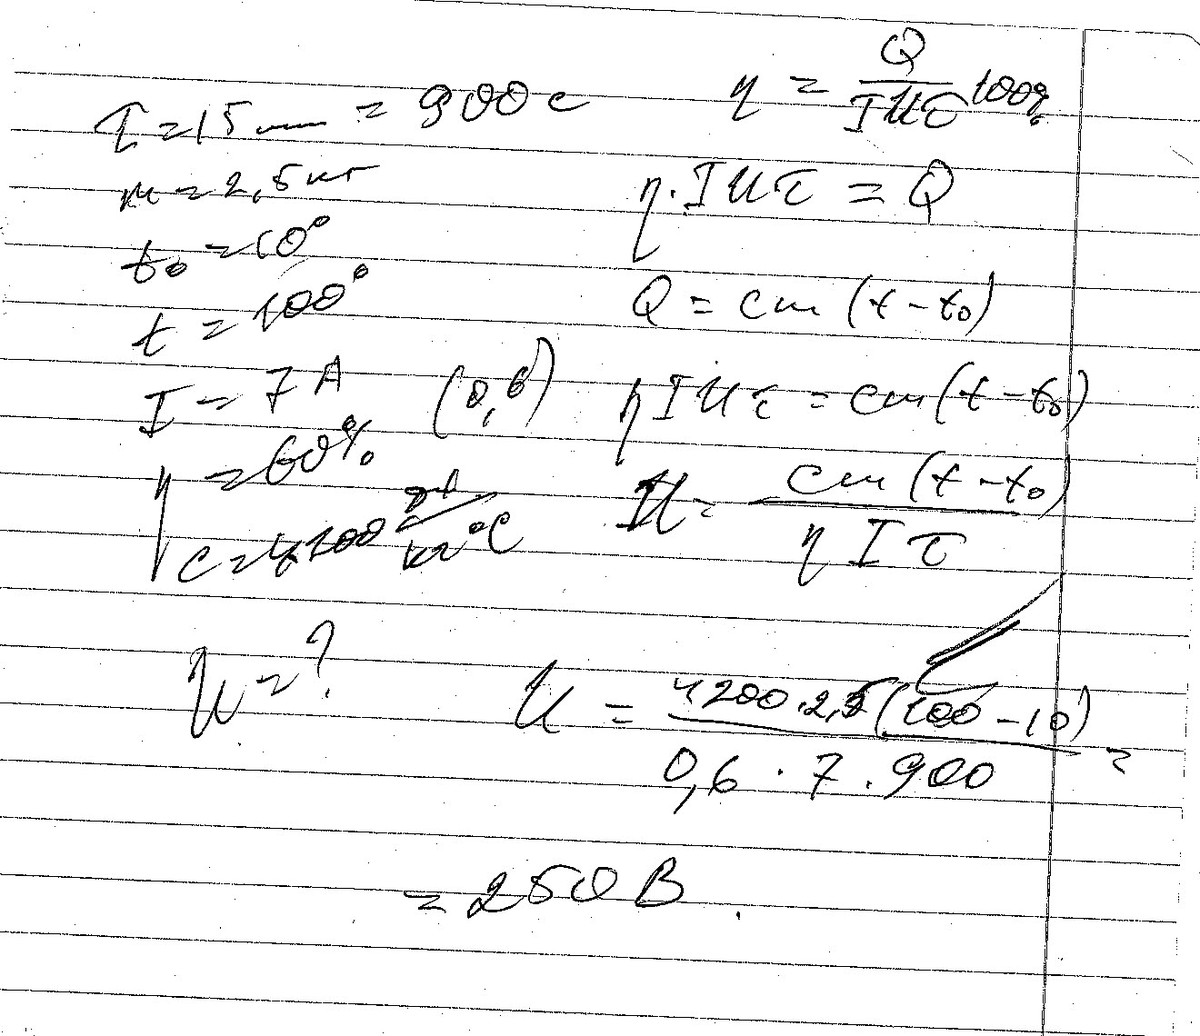 τ = 15 мин = 900 с
m = 2,5 кг
t₀ = 10°
t = 100°
I = 7 А
η = 60% (0,6)
c = 4200 Дж/кг°С
U = ?
η = Q/IUτ 100%
η · IUτ = Q
Q = cm (t - t₀)
ηIUτ = cm (t - t₀)
U = cm (t - t₀)/ηIτ
U = 4200 · 2,5 (100 - 10)/0,6 · 7 · 900 =
= 250 В.